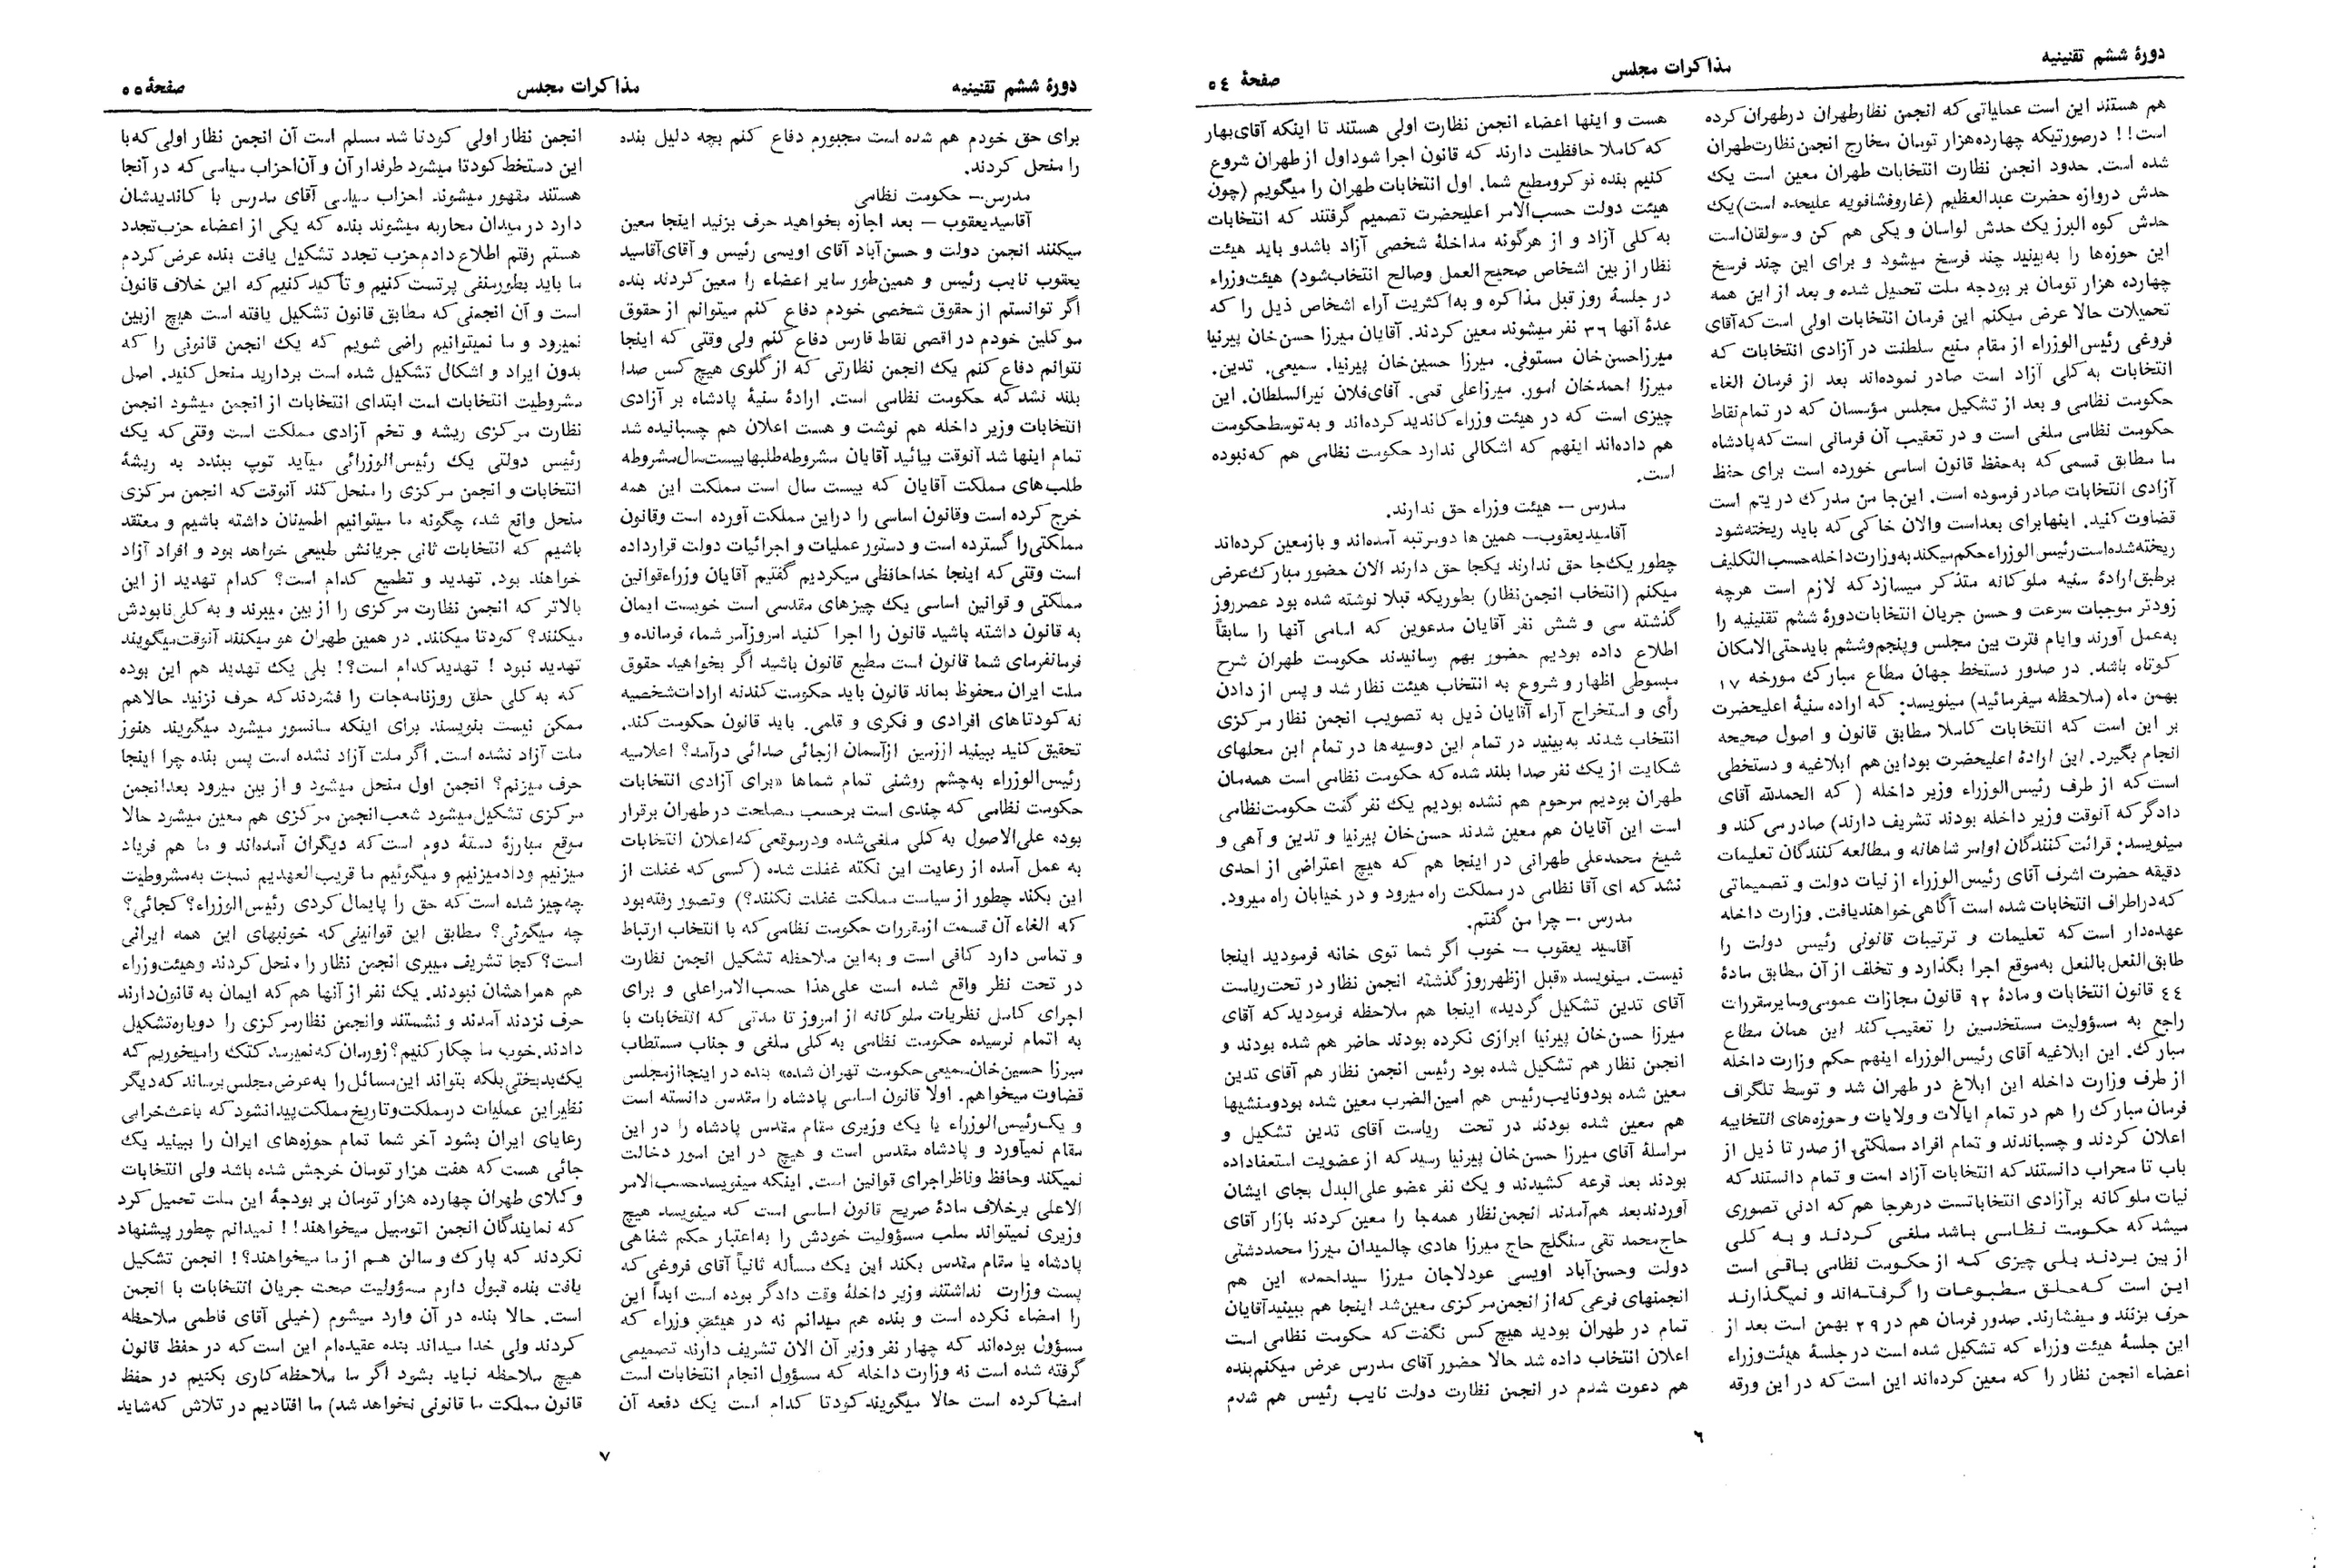 دورهٔ ششم تقنینیه
مذاکرات مجلس
صفحهٔ ٥٤
هم هستند این است عملیاتی که انجمن نظارطهران درطهران کرده
است!! درصورتیکه چهارده‌هزار تومان مخارج انجمن نظارت‌طهران
شده است. حدود انجمن نظارت انتخابات طهران معین است یک
حدش دروازه حضرت عبدالعظیم (غاروفشافویه علیحده است)یک
حدش کوه البرز یک حدش لواسان و یکی هم کن و سولقان‌است
این حوزه‌ها را به‌بینید چند فرسخ میشود و برای این چند فرسخ
چهارده هزار تومان بر بودجه ملت تحمیل شده و بعد از این همه
تحمیلات حالا عرض میکنم این فرمان انتخابات اولی است که‌آقای
فروغی رئیس‌الوزراء از مقام منیع سلطنت در آزادی انتخابات که
انتخابات به‌کلی آزاد است صادر نموده‌اند بعد از فرمان الغاء
حکومت نظامی و بعد از تشکیل مجلس مؤسسان که در تمام‌نقاط
حکومت نظامی ملغی است و در تعقیب آن فرمانی است که‌پادشاه
ما مطابق قسمی که به‌حفظ قانون اساسی خورده است برای حفظ
آزادی انتخابات صادر فرموده است. این‌جا من مدرک در یتم است
قضاوت کنید. اینهابرای بعداست والان خاکی که باید ریخته‌شود
ریخته‌شده‌است‌رئیس‌الوزراء‌حکم‌میکند‌به‌وزارت‌داخله‌حسب‌التکلیف
برطبق‌ارادهٔ سنیه ملوکانه متذکر میسازد که لازم است هرچه
زودتر موجبات سرعت و حسن جریان انتخابات‌دورهٔ ششم تقنینیه را
به‌عمل آورند وایام فترت بین مجلس وپنجم‌وششم بایدحتی‌الامکان
کوتاه باشد. در صدور دستخط جهان مطاع مبارک مورخه ١٧
بهمن ماه (ملاحظه میفرمائید) مینویسد: که اراده سنیهٔ اعلیحضرت
بر این است که انتخابات کاملا مطابق قانون و اصول صحیحه
انجام بگیرد. این ارادهٔ اعلیحضرت بوداین‌هم ابلاغیه و دستخطی
است‌که از طرف رئیس‌الوزراء وزیر داخله ( که الحمدلله آقای
دادگر که آنوقت وزیر داخله بودند تشریف دارند) صادر می‌کند و
مینویسد: قرائت کنندگان اوامر شاهانه و مطالعه کنندگان تعلیمات
دقیقه حضرت اشرف آقای رئیس‌الوزراء از نیات دولت و تصمیماتی
که‌دراطراف انتخابات شده است آگاهی‌خواهندیافت. وزارت داخله
عهده‌دار است‌که تعلیمات و ترتیبات قانونی رئیس دولت را
طابق‌النعل بالنعل به‌موقع اجرا بگذارد و تخلف از آن مطابق مادهٔ
٤٤ قانون انتخابات و مادهٔ ٩٢ قانون مجازات عمومی‌وسایرمقررات
راجع به مسؤولیت مستخدمین را تعقیب‌کند این همان مطاع
مبارک. این ابلاغیه آقای رئیس‌الوزراء اینهم حکم وزارت داخله
از طرف وزارت داخله این ابلاغ در طهران شد و توسط تلگراف
فرمان مبارک را هم در تمام ایالات و ولایات و حوزه‌های انتخابیه
اعلان کردند و چسباندند و تمام افراد مملکتی از صدر تا ذیل از
باب تا محراب دانستند که انتخابات آزاد است و تمام دانستند که
نیات ملوکانه برآزادی انتخاباتست درهرجا هم که ادنی تصوری
میشد که حکومت نظامی باشد ملغی کردند و به کلی
از بین بردند بلی چیزی که از حکومت نظامی باقی است
این است که‌حلق مطبوعات را گرفته‌اند و نمیگذارند
حرف بزنند و میفشارند. صدور فرمان هم در ٢٩ بهمن است بعد از
این جلسهٔ هیئت وزراء که تشکیل شده است در جلسهٔ هیئت‌وزراء
اعضاء انجمن نظار را که معین کرده‌اند این است‌که در این ورقه
هست و اینها اعضاء انجمن نظارت اولی هستند تا اینکه آقای‌بهار
که کاملا حافظیت دارند که قانون اجرا شوداول از طهران شروع
کنیم بنده نوکرومطیع شما. اول انتخابات طهران را میگویم (چون
هیئت دولت حسب‌الامر اعلیحضرت تصمیم گرفتند که انتخابات
به کلی آزاد و از هرگونه مداخلهٔ شخصی آزاد باشدو باید هیئت
نظار از بین اشخاص صحیح‌العمل وصالح انتخاب‌شود) هیئت‌وزراء
در جلسهٔ روز قبل مذاکره و به‌اکثریت آراء اشخاص ذیل را که
عدهٔ آنها ٣٦ نفر میشوند معین کردند. آقایان میرزا حسن‌خان پیرنیا
میرزاحسن‌خان مستوفی. میرزا حسین‌خان پیرنیا. سمیعی. تدین.
میرزا احمدخان امور. میرزاعلی قمی. آقای‌فلان نیرالسلطان. این
چیزی است که در هیئت وزراء کاندید کرده‌اند و به توسط‌حکومت
هم داده‌اند اینهم که اشکالی ندارد حکومت نظامی هم که‌نبوده
است.
مدرس – هیئت وزراء حق ندارند.
آقاسیدیعقوب – همین ها دومرتبه آمده‌اند و بازمعین کرده‌اند
چطور یک‌جا حق ندارند یکجا حق دارند الان حضور مبارک‌عرض
میکنم (انتخاب انجمن‌نظار) بطوریکه قبلا نوشته شده بود عصرروز
گذشته سی و شش نفر آقایان مدعوین که اسامی آنها را سابقاً
اطلاع داده بودیم حضور بهم رسانیدند حکومت طهران شرح
مبسوطی اظهار و شروع به انتخاب هیئت نظار شد و پس از دادن
رأی و استخراج آراء آقایان ذیل به تصویب انجمن نظار مرکزی
انتخاب شدند به‌بینید در تمام این دوسیه‌ها در تمام این محلهای
شکایت از یک نفر صدا بلند شده که حکومت نظامی است همه‌مان
طهران بودیم مرحوم هم نشده بودیم یک نفر گفت حکومت‌نظامی
است این آقایان هم معین شدند حسن‌خان پیرنیا و تدین و آهی و
شیخ محمدعلی طهرانی در اینجا هم که هیچ اعتراض از احدی
نشد که ای آقا نظامی در مملکت راه میرود و در خیابان راه میرود.
مدرس – چرا من گفتم.
آقاسید یعقوب – خوب اگر شما توی خانه فرمودید اینجا
نیست. مینویسد «قبل ازظهرروز گذشته انجمن نظار در تحت‌ریاست
آقای تدین تشکیل گردید» اینجا هم ملاحظه فرمودید که آقای
میرزا حسن‌خان پیرنیا ابرازی نکرده بودند حاضر هم شده بودند و
انجمن نظار هم تشکیل شده بود رئیس انجمن نظار هم آقای تدین
معین شده بودونایب‌رئیس هم امین‌الضرب معین شده بودومنشیها
هم معین شده بودند در تحت ریاست آقای تدین تشکیل و
مراسلهٔ آقای میرزا حسن‌خان پیرنیا رسید که از عضویت استعفاداده
بودند بعد قرعه کشیدند و یک نفر عضو علی‌البدل بجای ایشان
آوردندبعد هم‌آمدند انجمن‌نظار همه‌جا را معین کردند بازار آقای
حاج‌محمد تقی سنگلج حاج میرزا هادی چالمیدان میرزا محمددشتی
دولت وحسن‌آباد اویسی عودلاجان میرزا سیداحمد» این هم
انجمنهای فرعی که‌از انجمن‌مرکزی معین‌شد اینجا هم ببینیدآقایان
تمام در طهران بودید هیچ کس نگفت‌که حکومت نظامی است
اعلان انتخاب داده شد حالا حضور آقای مدرس عرض میکنم‌بنده
هم دعوت شدم در انجمن نظارت دولت نایب رئیس هم شدم
٦
دورهٔ ششم تقنینیه
مذاکرات مجلس
صفحهٔ ٥٥
برای حق خودم هم شده است مجبورم دفاع کنم بچه دلیل بنده
را منحل کردند.
مدرس – حکومت نظامی
آقاسیدیعقوب – بعد اجازه بخواهید حرف بزنید اینجا معین
میکنند انجمن دولت و حسن‌آباد آقای اویسی رئیس و آقای‌آقاسید
یعقوب نایب رئیس و همین‌طور سایر اعضاء را معین کردند بنده
اگر توانستم از حقوق شخصی خودم دفاع کنم میتوانم از حقوق
موکلین خودم در اقصی نقاط فارس دفاع کنم ولی وقتی که اینجا
نتوانم دفاع کنم یک انجمن نظارتی که از گلوی هیچ کس صدا
بلند نشد که حکومت نظامی است. ارادهٔ سنیهٔ پادشاه بر آزادی
انتخابات وزیر داخله هم نوشت و هست اعلان هم چسبانیده شد
تمام اینها شد آنوقت بیائید آقایان مشروطه‌طلبهابیست‌سال‌مشروطه
طلب‌های مملکت آقایان که بیست سال است مملکت این همه
خرج کرده است وقانون اساسی را دراین مملکت آورده است وقانون
مملکتی‌را گسترده است و دستور عملیات و اجرائیات دولت قرارداده
است وقتی که اینجا خداحافظی میکردیم گفتیم آقایان وزراءقوانین
مملکتی و قوانین اساسی یک چیزهای مقدسی است خوبست ایمان
به قانون داشته باشید قانون را اجرا کنید امروزآمر شما، فرمانده و
فرمانفرمای شما قانون است مطیع قانون باشید اگر بخواهید حقوق
ملت ایران محفوظ بماند قانون باید حکومت کندنه ارادات‌شخصیه
نه کودتاهای افرادی و فکری و قلمی. باید قانون حکومت کند.
تحقیق کنید ببینید اززمین ازآسمان ازجائی صدائی درآمد؟ اعلامیه
رئیس‌الوزراء به‌چشم روشنی تمام شماها «برای آزادی انتخابات
حکومت نظامی که چندی است برحسب مصلحت در طهران برقرار
بوده علی‌الاصول به‌کلی ملغی‌شده ودرموقعی که‌اعلان انتخابات
به عمل آمده از رعایت این نکته غفلت شده (کسی که غفلت از
این بکند چطور از سیاست مملکت غفلت نکنند؟) وتصور رفته‌بود
که الغاء آن قسمت ازمقررات حکومت نظامی که با انتخاب ارتباط
و تماس دارد کافی است و به‌این ملاحظه تشکیل انجمن نظارت
در تحت نظر واقع شده است علی‌هذا حسب‌الامراعلی و برای
اجرای کامل نظریات ملوکانه از امروز تا مدتی که انتخابات با
به اتمام نرسیده حکومت نظامی به کلی ملغی و جناب مستطاب
میرزا حسین‌خان‌سمیعی‌حکومت تهران شده» بنده در اینجاازمجلس
قضاوت میخواهم. اولا قانون اساسی پادشاه را مقدس دانسته است
و یک‌رئیس‌الوزراء یا یک وزیری مقام مقدس پادشاه را در این
مقام نمیآورد و پادشاه مقدس است و هیچ در این امور دخالت
نمیکند وحافظ وناظراجرای قوانین است. اینکه مینویسدحسب‌الامر
الاعلی برخلاف مادهٔ صریح قانون اساسی است که مینویسد هیچ
وزیری نمیتواند سلب مسؤولیت خودش را به‌اعتبار حکم شفاهی
پادشاه یا مقام مقدس بکند این یک مسأله ثانیاً آقای فروغی که
پست وزارت نداشتند وزیر داخلهٔ وقت دادگر بوده است ابداً این
را امضاء نکرده است و بنده هم میدانم نه در هیئت وزراء که
مسؤول بوده‌اند که چهار نفر وزیر آن الان تشریف دارند تصمیمی
گرفته شده است نه وزارت داخله که مسؤول انجام انتخابات است
امضا کرده است حالا میگویند کودتا کدام است یک دفعه آن
انجمن نظار اولی کودتا شد مسلم است آن انجمن نظار اولی که‌با
این دستخط کودتا میشود طرفدار آن و آن‌احزاب سیاسی که در آنجا
هستند مقهور میشوند احزاب سیاسی آقای مدرس با کاندیدشان
دارد در میدان محاربه میشوند بنده که یکی از اعضاء حزب‌تجدد
هستم رفتم اطلاع دادم‌حزب تجدد تشکیل یافت بنده عرض کردم
ما باید بطورمنفی پرتست کنیم و تأکید کنیم‌که این خلاف قانون
است و آن انجمنی که مطابق قانون تشکیل یافته است هیچ ازبین
نمیرود و ما نمیتوانیم راضی شویم که یک انجمن قانونی را که
بدون ایراد و اشکال تشکیل شده است بردارید منحل کنید. اصل
مشروطیت انتخابات است ابتدای انتخابات از انجمن میشود انجمن
نظارت مرکزی ریشه و تخم آزادی مملکت است وقتی که یک
رئیس دولتی یک رئیس‌الوزرائی میآید توپ ببندد به ریشهٔ
انتخابات و انجمن مرکزی را منحل کند آنوقت‌که انجمن مرکزی
منحل واقع شد، چگونه ما میتوانیم اطمینان داشته باشیم و معتقد
باشیم که انتخابات ثانی جریانش طبیعی خواهد بود و افراد آزاد
خواهند بود. تهدید و تطمیع کدام است؟ کدام تهدید از این
بالاتر که انجمن نظارت مرکزی را از بین میبرند و به کلی‌نابودش
میکنند؟ کودتا میکنند. در همین طهران هو میکنند آنوقت‌میگویند
تهدید نبود ! تهدید کدام است؟! بلی یک تهدید هم این بوده
که به کلی حلق روزنامه‌جات را فشردند که حرف نزنید حالاهم
ممکن نیست بنویسند برای اینکه سانسور میشود میگویند هنوز
ملت آزاد نشده است. اگر ملت آزاد نشده است پس بنده چرا اینجا
حرف میزنم؟ انجمن اول منحل میشود و از بین میرود بعدانجمن
مرکزی تشکیل‌میشود شعب‌انجمن مرکزی هم معین میشود حالا
موقع مبارزهٔ دستهٔ دوم است که دیگران آمده‌اند و ما هم فریاد
میزنیم ودادمیزنیم و میگوئیم ما قریب‌العهدیم نسبت به‌مشروطیت
چه‌چیز شده است که حق را پایمال کردی رئیس‌الوزراء؟ کجائی؟
چه میگوئی؟ مطابق این قوانینی که خونبهای این همه ایرانی
است؟ کجا تشریف میبری انجمن نظار را منحل کردند وهیئت‌وزراء
هم همراهشان نبودند. یک نفر از آنها هم که ایمان به قانون‌دارند
حرف نزدند آمدند و نشستند وانجمن نظارمرکزی را دوباره‌تشکیل
دادند.خوب ما چکار کنیم؟ زورمان که‌نمیرسد کتک رامیخوریم که
یک‌بدبختی‌بلکه بتواند این‌مسائل‌را به‌عرض‌مجلس‌برساند که‌دیگر
نظیراین عملیات درمملکت‌وتاریخ‌مملکت‌پیدانشود که باعث‌خرابی
رعایای ایران بشود آخر شما تمام حوزه‌های ایران را ببینید یک
جائی هست که هفت هزار تومان خرجش شده باشد ولی انتخابات
وکلای طهران چهارده هزار تومان بر بودجهٔ این ملت تحمیل کرد
که نمایندگان انجمن اتومبیل میخواهند!! نمیدانم چطور پیشنهاد
نکردند که پارک و سالن هم از ما میخواهند؟! انجمن تشکیل
یافت بنده قبول دارم مسؤولیت صحت جریان انتخابات با انجمن
است. حالا بنده در آن وارد میشوم (خیلی آقای فاطمی ملاحظه
کردند ولی خدا میداند بنده عقیده‌ام این است که در حفظ قانون
هیچ ملاحظه نباید بشود اگر ما ملاحظه‌کاری بکنیم در حفظ
قانون مملکت ما قانونی نخواهد شد) ما افتادیم در تلاش که‌شاید
٧